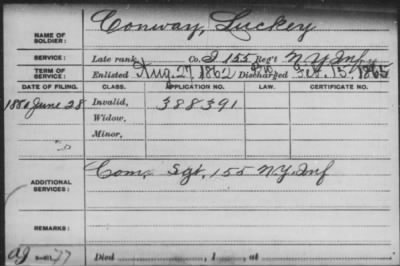 NAME OF SOLDIER: Conway, Luckey
SERVICE: Late rank, Co. I 155 Reg't N.Y. Inf
TERM OF SERVICE: Enlisted Aug. 27, 1862 Discharged 15, 1865
DATE OF FILING. CLASS. APPLICATION NO. LAW. CERTIFICATE NO.
1880 June 28 Invalid, 388391
Widow,
Minor,
ADDITIONAL SERVICES: Com. Sgt, 155 N.Y. Inf
REMARKS:
Died , 1 , at